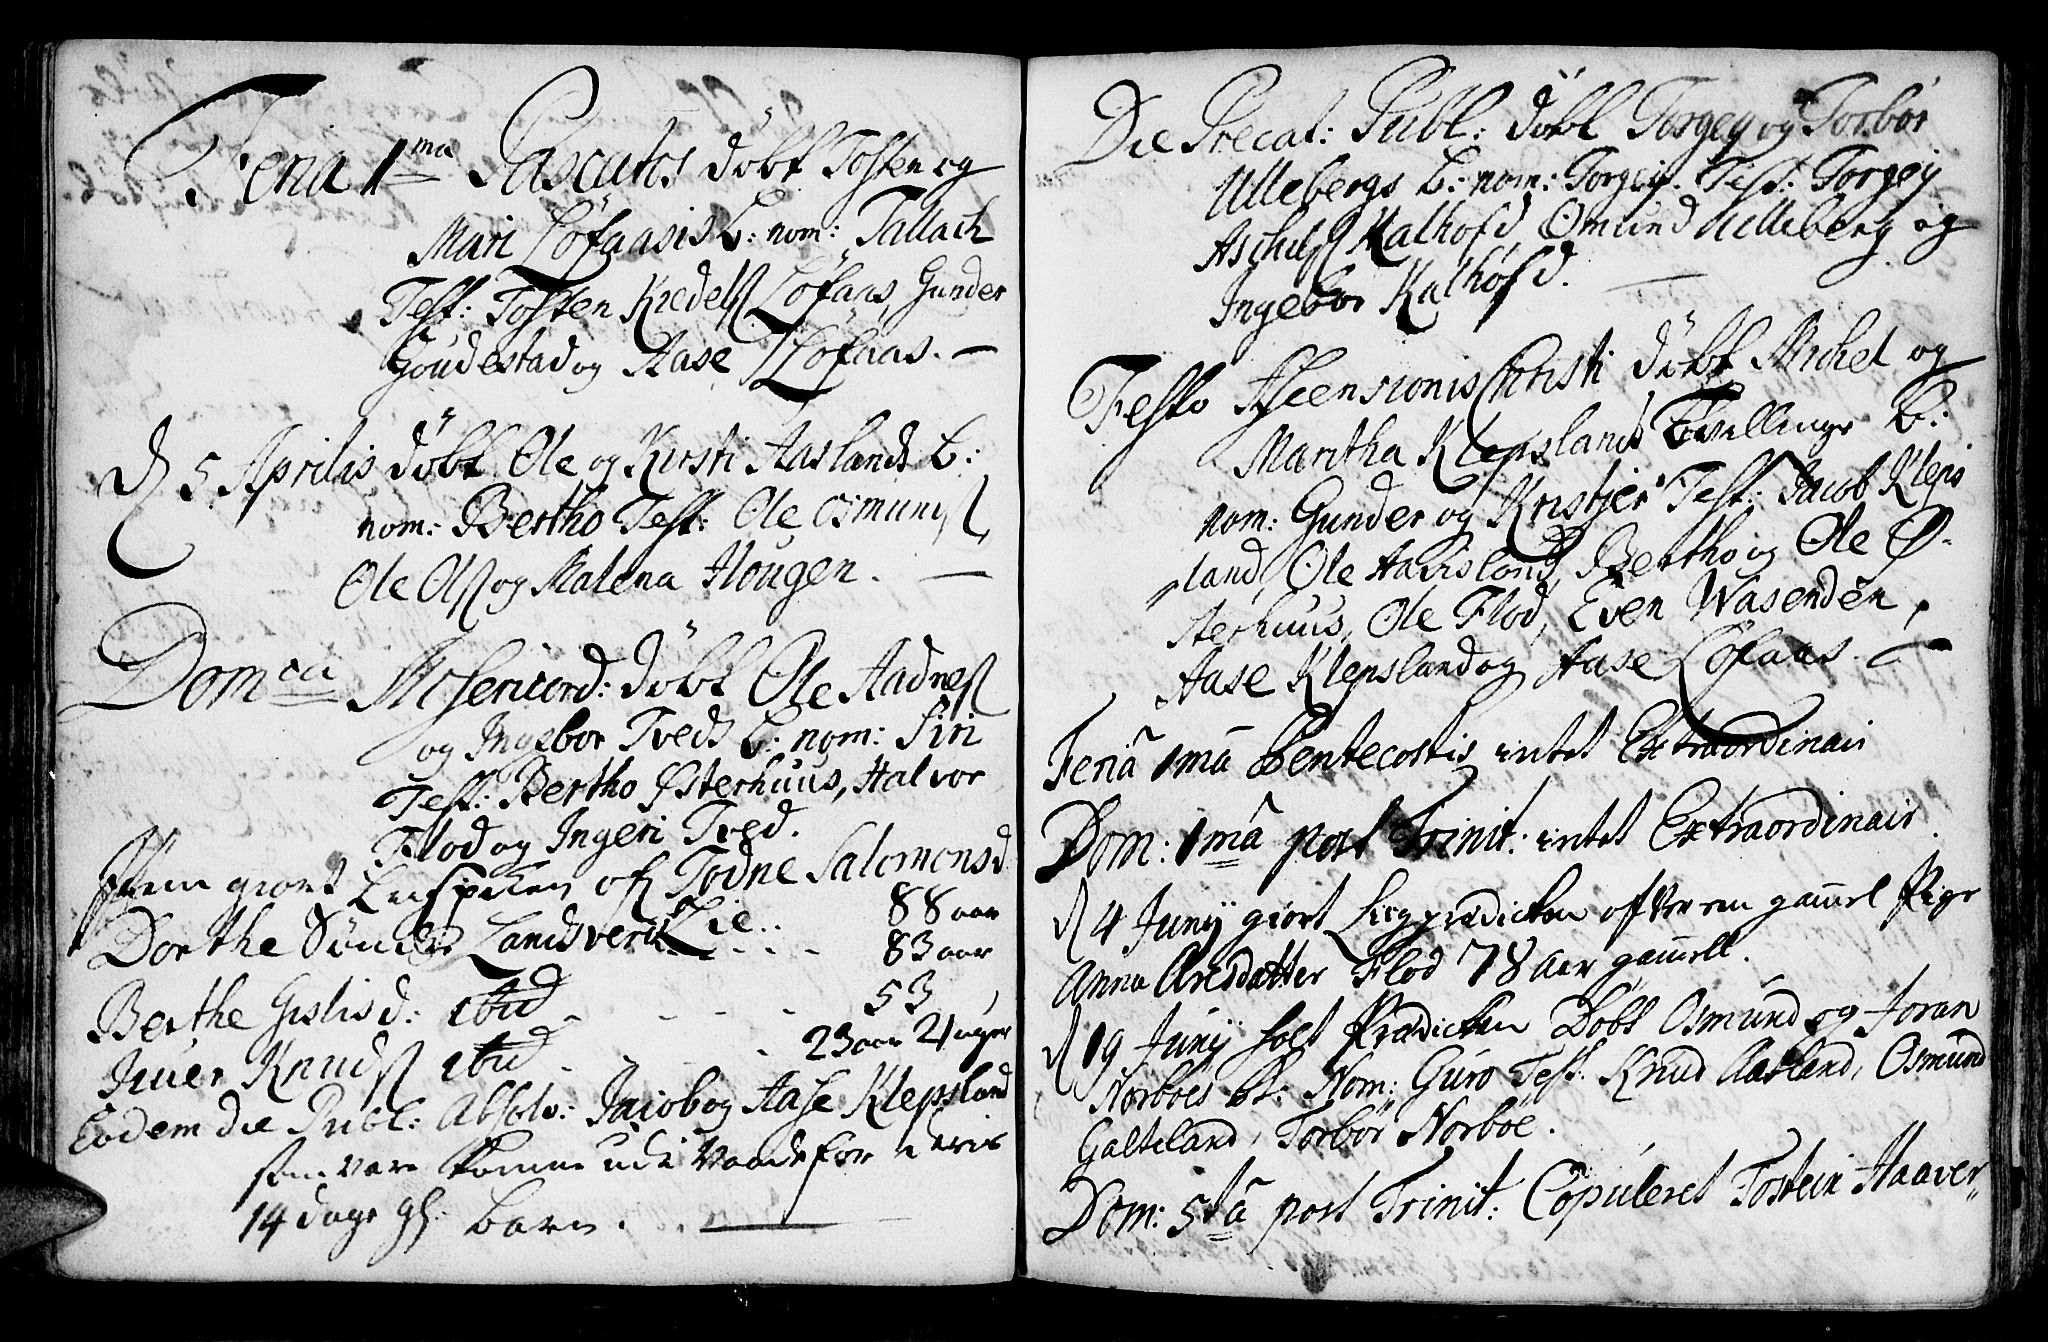 Feria 1ma Pascatos döbt Tosten og
Mari Löfaasis B: nom: Tallach
Test: Tosten Kredelss Löfaas, Gunder
Goudestad og Aase Löfaas. —
d 5 Aprilis döbt Ole og Kirsti Aaslands B:
nom: Bertho Test: Ole Osmundss,
Ole Olss og Malena Hougen. —
Domca Misericord: döbt Ole Aadness
og Ingebor Treds B: nom: Siri
Test: Bertho Østerhuus, Halvor
Flod og Ingeri Tred.
Item giort Liigpreken ofr Todne Salomonsd
Dorthe Sønder Landsverk Lie . . 88 aar
83 aar
Berthe Gislisd: ibid - - - - 53
Iver Knudss ibid - - - 23 aar 2 uger
Eodem die Publ: Absolv: Jacob og Aase Klepsland
som vare komne udi Vaade for deris
14 dage gl: Barn. —
Die Precat: Publ: döbt Torgey og Torbör
Ullebergs B: nom: Torgey. Test: Torgey
Aschelss Kalhofd, Omund Ulleberg og
Ingebor Kalhofd. —
Festo Ascensionis Christi döbt Michel og
Maritha Klepslands Tvillinge B:
nom: Gunder og Kristjer Test: Jacob Kleps
land, Ole Haavisland, Bertho og Ole Ø-
sterhuus, Ole Flod, Even Wasenden,
Aase Klepsland og Aase Löfaas. —
Feriâ 1mâ Pentecostis intet Extraordinair
Dom: 1mâ post Trinit: intet Extraordinair.
d 4 Junij giort Liigprædicken ofver en gamel Pige
Anna Aresdatter Flod 78 Aar gamell.
d 19 Junij holt Prædicken Döbt Osmund og Joran
Norboes B: Nom: Guro Test: Knud Aasland, Osmund
Galteland, Torbör Norboe.
Dom: 5tâ post Trinit: Copuleret Tostein Haaver-